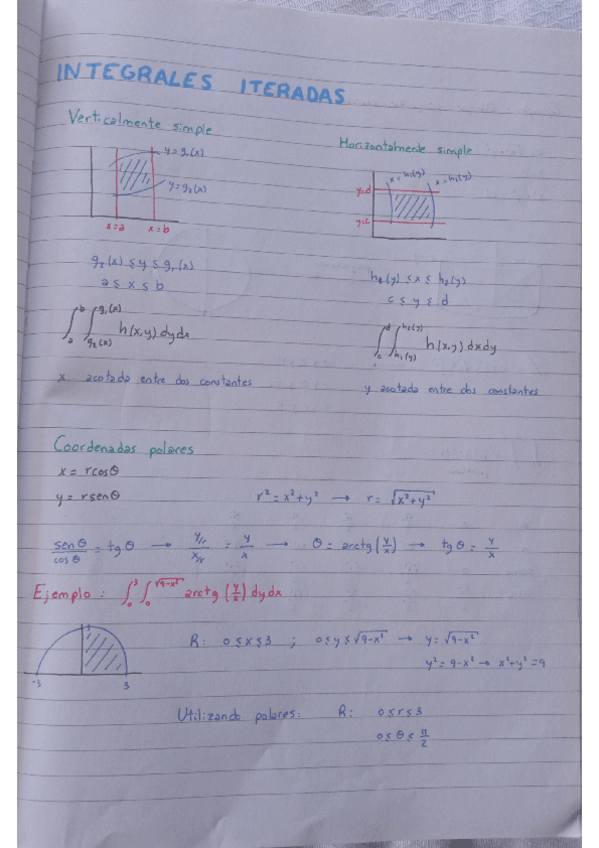 INTEGRALES ITERADAS
Verticalmente simple
y=g₁(x)
y=g₂(x)
x=a x=b
g₂(x) ≤ y ≤ g₁(x)
a ≤ x ≤ b
∫ₐᵇ ∫_{g₂(x)}^{g₁(x)} h(x,y) dy dx
x acotada entre dos constantes
Horizontalmente simple
x=h₁(y) x=h₂(y)
y=d
y=c
h₁(y) ≤ x ≤ h₂(y)
c ≤ y ≤ d
∫_c^d ∫_{h₁(y)}^{h₂(y)} h(x,y) dx dy
y acotada entre dos constantes
Coordenadas polares
x = r cosθ
y = r senθ r² = x²+y² → r = √(x²+y²)
senθ/cosθ = tgθ → (y/r)/(x/r) = y/x → θ = arctg(y/x) → tgθ = y/x
Ejemplo: ∫₀³ ∫₀^{√(9-x²)} arctg(y/x) dy dx
3
-3 3
R: 0≤x≤3 ; 0≤y≤√(9-x²) → y=√(9-x²)
y² = 9-x² → x²+y² = 9
Utilizando polares: R: 0≤r≤3
0≤θ≤π/2